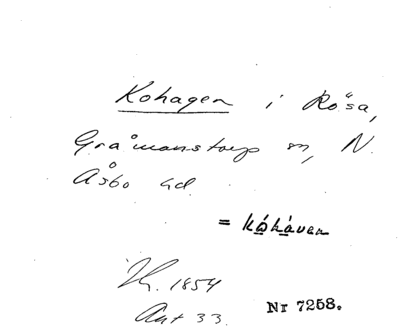 Kohagen i Rösa,
Gråmanstorp sn, N.
Åsbo hd
= kǫ́hàven
1854
Ant 33.
Nr 7258.